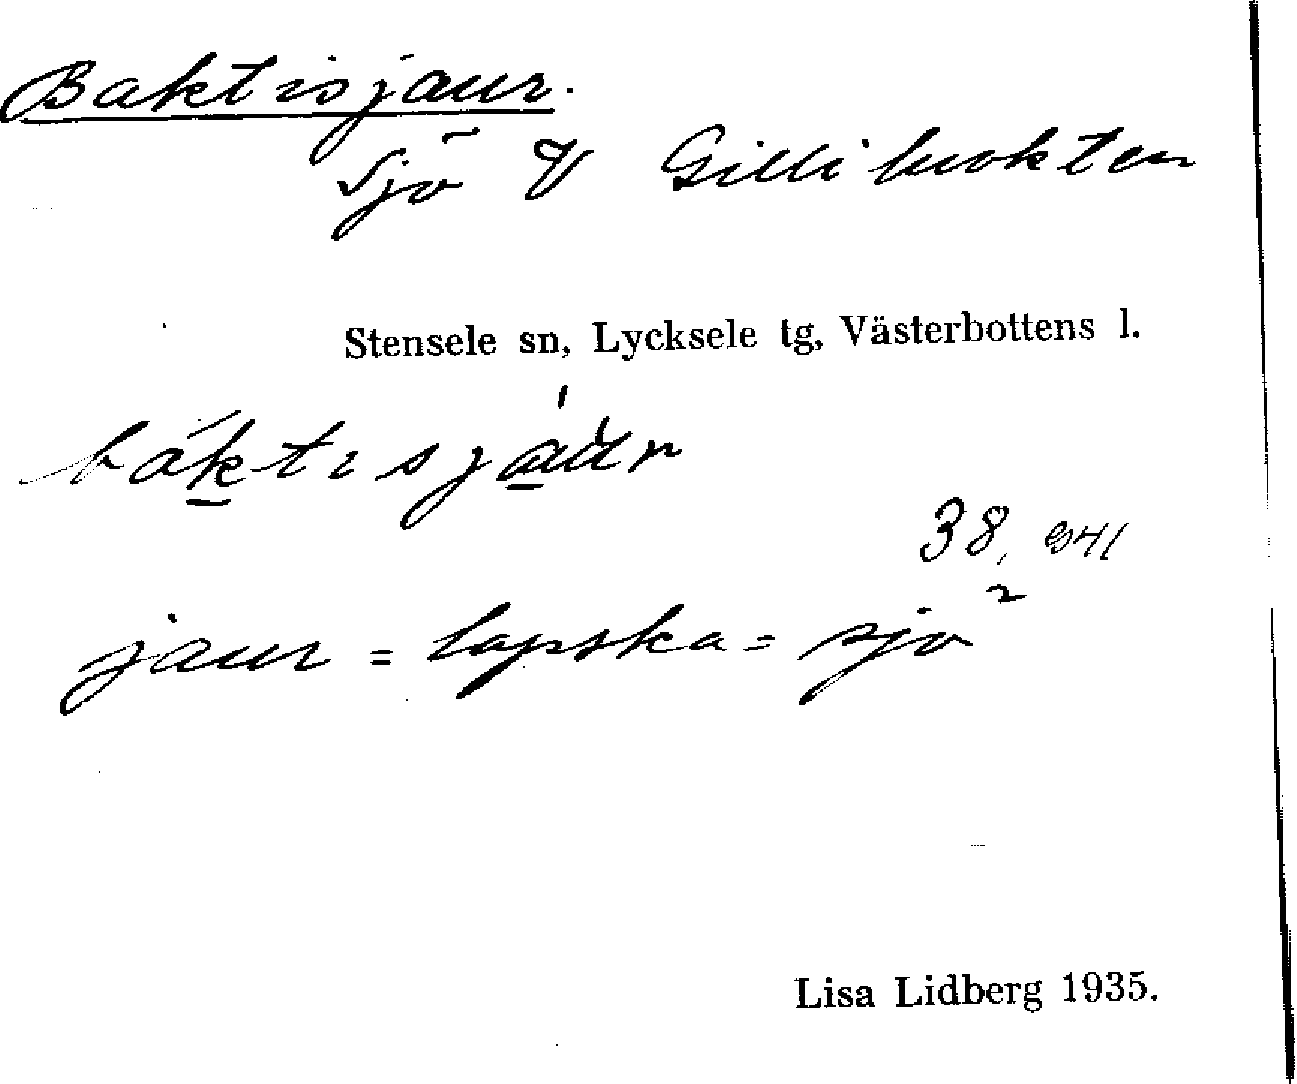 Baktisjaur.
Sjö V Gillibukten
Stensele sn, Lycksele tg, Västerbottens l.
báktisjàùr
38,
jaur = lapska = sjö
Lisa Lidberg 1935.